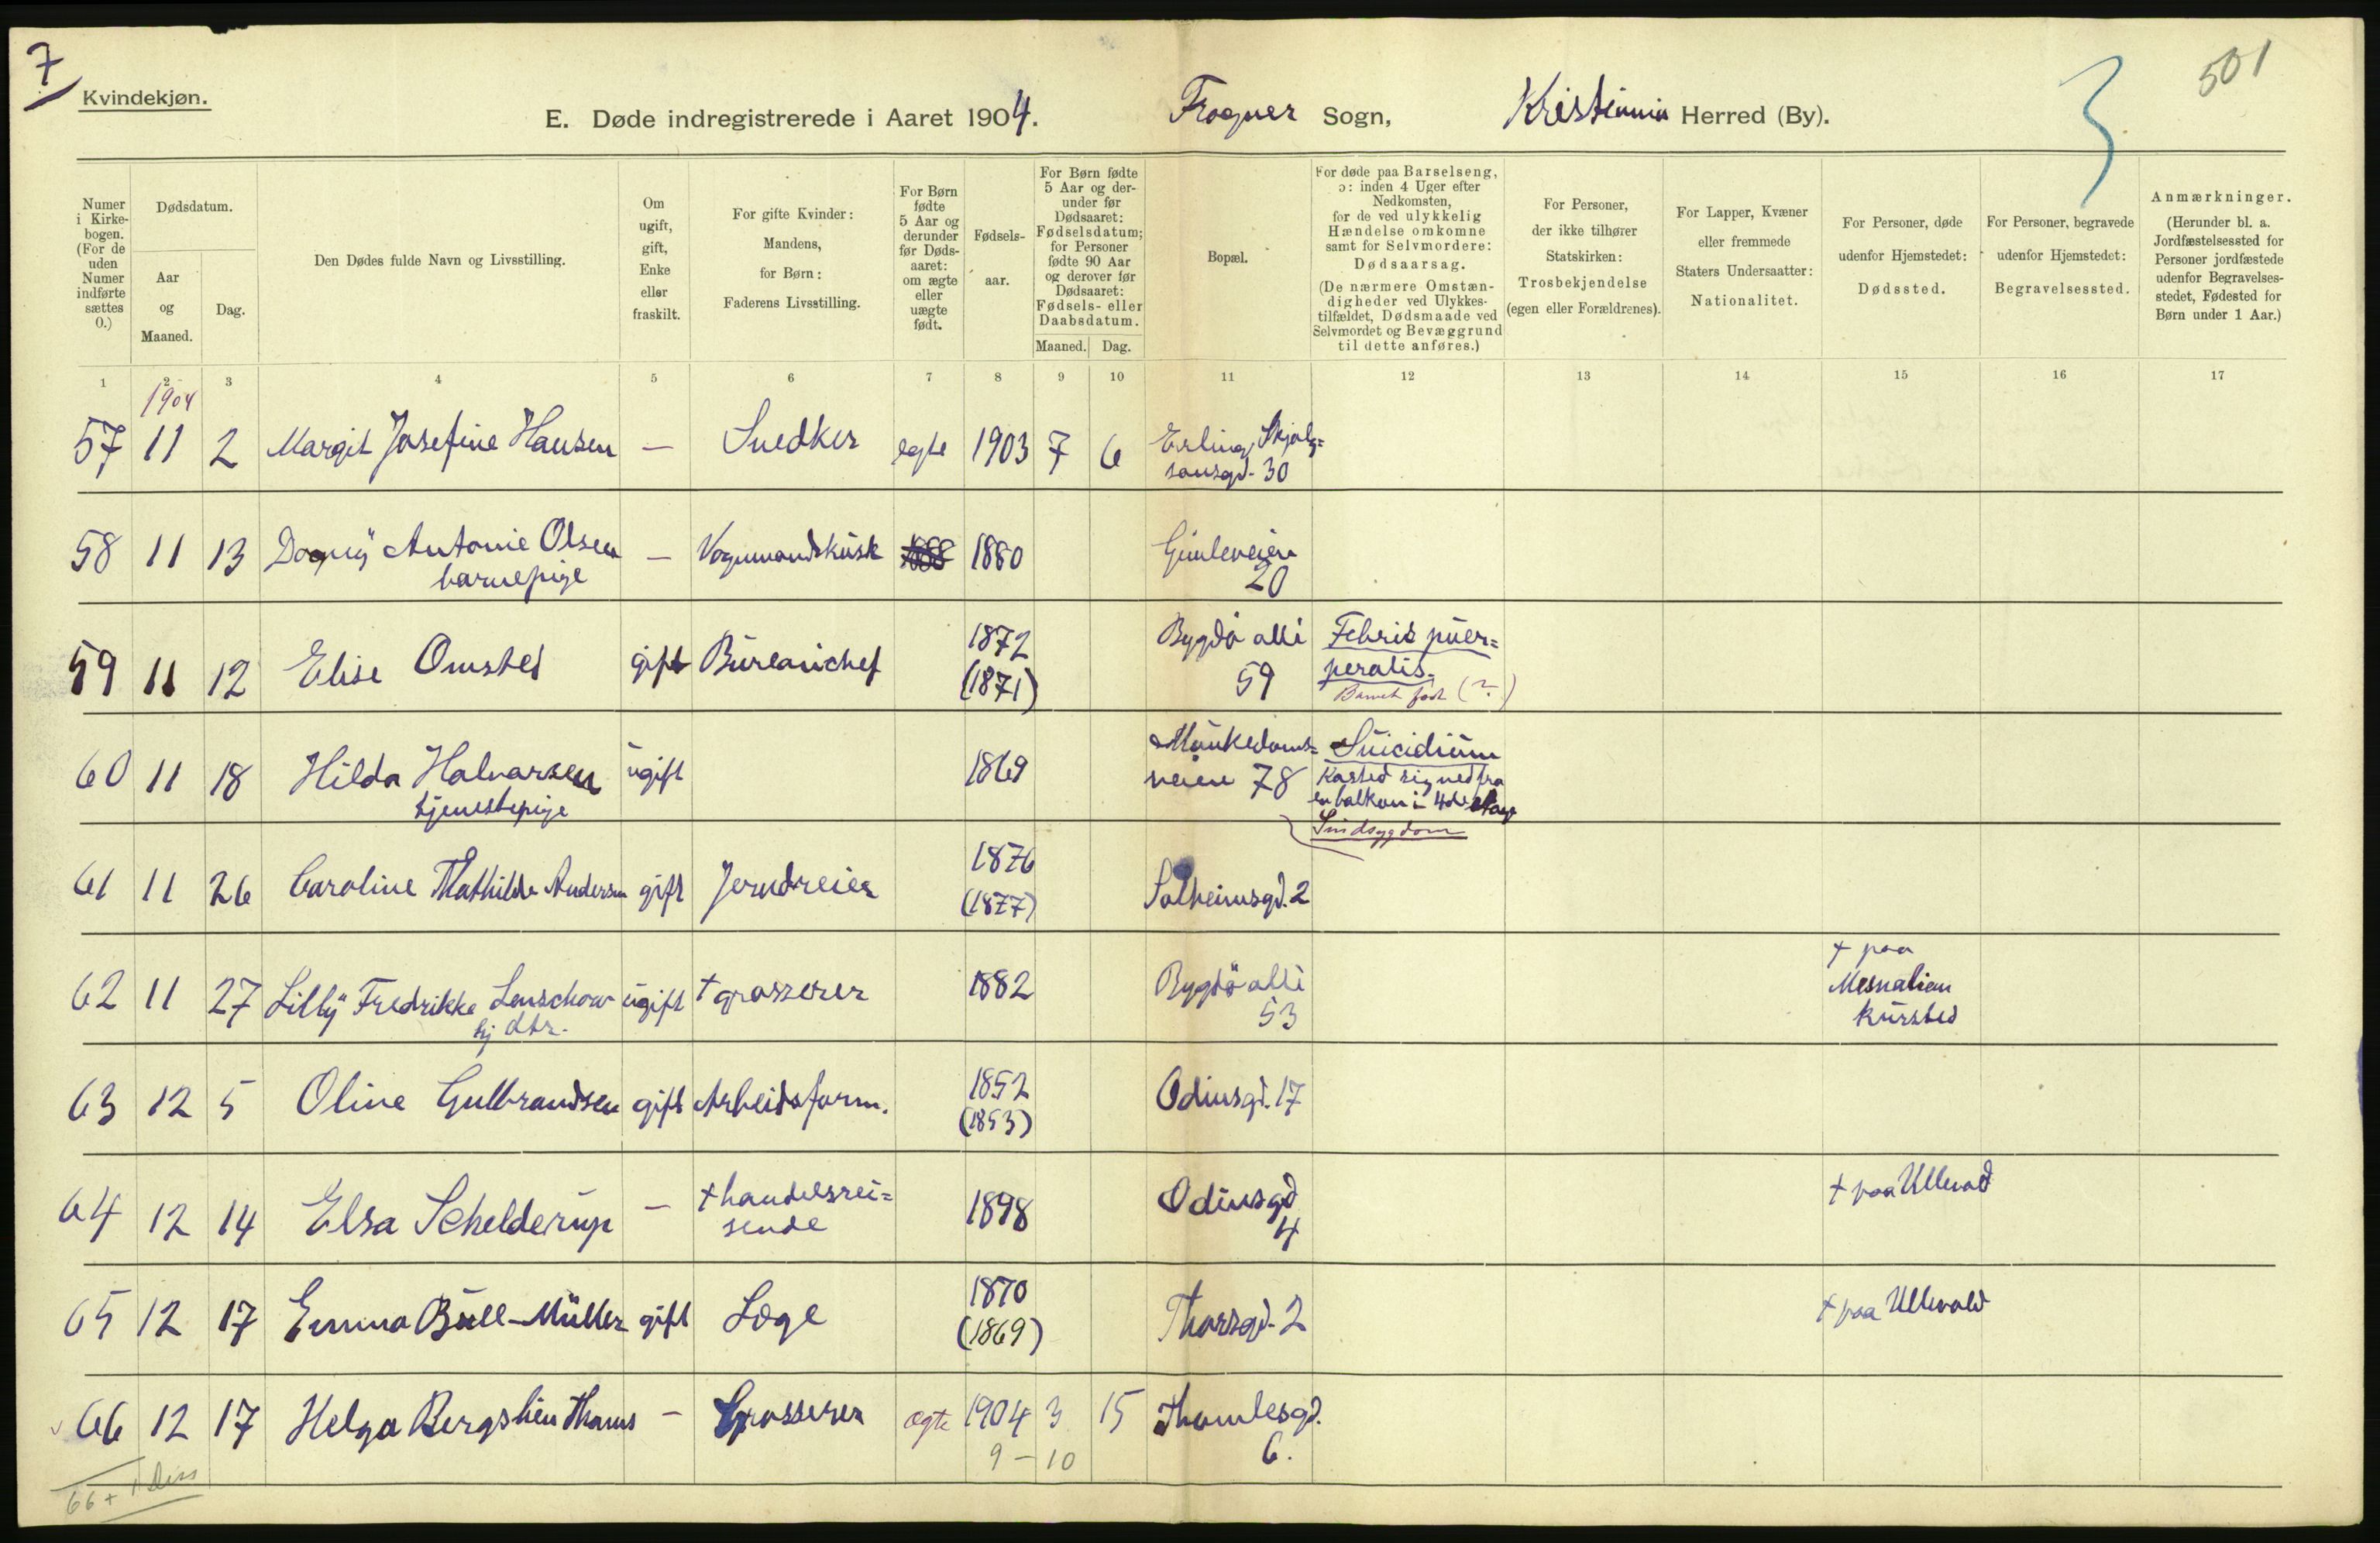 7
Kvindekjøn.
E. Døde indregistrerede i Aaret 1904.
Frogner Sogn,
Kristiania Herred (By).
3
501
Numer i Kirke-bogen. (For de uden Numer indførte sættes 0.)
Dødsdatum.
Aar og Maaned.
Dag.
Den Dødes fulde Navn og Livsstilling.
Om ugift, gift, Enke eller fraskilt.
For gifte Kvinder: Mandens, for Børn: Faderens Livsstilling.
For Børn fødte 5 Aar og derunder før Døds-aaret: om ægte eller uægte født.
Fødsels-aar.
For Børn fødte 5 Aar og der-under før Dødsaaret: Fødselsdatum; for Personer fødte 90 Aar og derover før Dødsaaret: Fødsels- eller Daabsdatum.
Maaned. Dag.
Bopæl.
For døde paa Barselseng, ɔ: inden 4 Uger efter Nedkomsten, for de ved ulykkelig Hændelse omkomne samt for Selvmordere: Dødsaarsag. (De nærmere Omstæn-digheder ved Ulykkes-tilfældet, Dødsmaade ved Selvmordet og Bevæggrund til dette anføres.)
For Personer, der ikke tilhører Statskirken: Trosbekjendelse (egen eller Forældrenes).
For Lapper, Kvæner eller fremmede Staters Undersaatter: Nationalitet.
For Personer, døde udenfor Hjemstedet: Dødssted.
For Personer, begravede udenfor Hjemstedet: Begravelsessted.
Anmærkninger. (Herunder bl. a. Jordfæstelsessted for Personer jordfæstede udenfor Begravelses-stedet, Fødested for Børn under 1 Aar.)
1 2 3 4 5 6 7 8 9 10 11 12 13 14 15 16 17
1904
57 11 2 Margit Josefine Hansen — Snedker egte 1903 7 6 Erling Skjalg=
sonsgd. 30
58 11 13 Dagny Antonie Olsen — Vognmandskusk 1880 Gimleveien
barnepige 20
59 11 12 Elise Omsted gift Bureauchef 1872 Bygdø allé Febris puer=
(1871) 59 peralis.
Barnet født (?)
60 11 18 Hilda Halvarsen ugift 1869 Munkedams= Suicidium
tjenestepige veien 78 Kasted sig ned fra
en balkon i 4de etage
Sindsygdom
61 11 26 Caroline Mathilde Andersen gift Jerndreier 1876
(1877) Solheimsgd. 2
62 11 27 Lilly Fredrikke Lenschow ugift + grosserer 1882 Bygdø allé + paa
hj dtr. 53 Mesnalien
Kursted
63 12 5 Oline Gulbrandsen gift Arbeidsform. 1852 Odinsgd. 17
(1853)
64 12 14 Elsa Schelderup — + handelsrei= 1898 Odinsgd + paa Ullevold
sende 4
65 12 17 Emma Bull-Müller gift Læge 1870 Thorsgd. 2 + paa Ullevold
(1869)
66 12 17 Helga Bergslien Thams — Grosserer ægte 1904 3 15 Thomlesgd.
9 – 10 6.
66 +